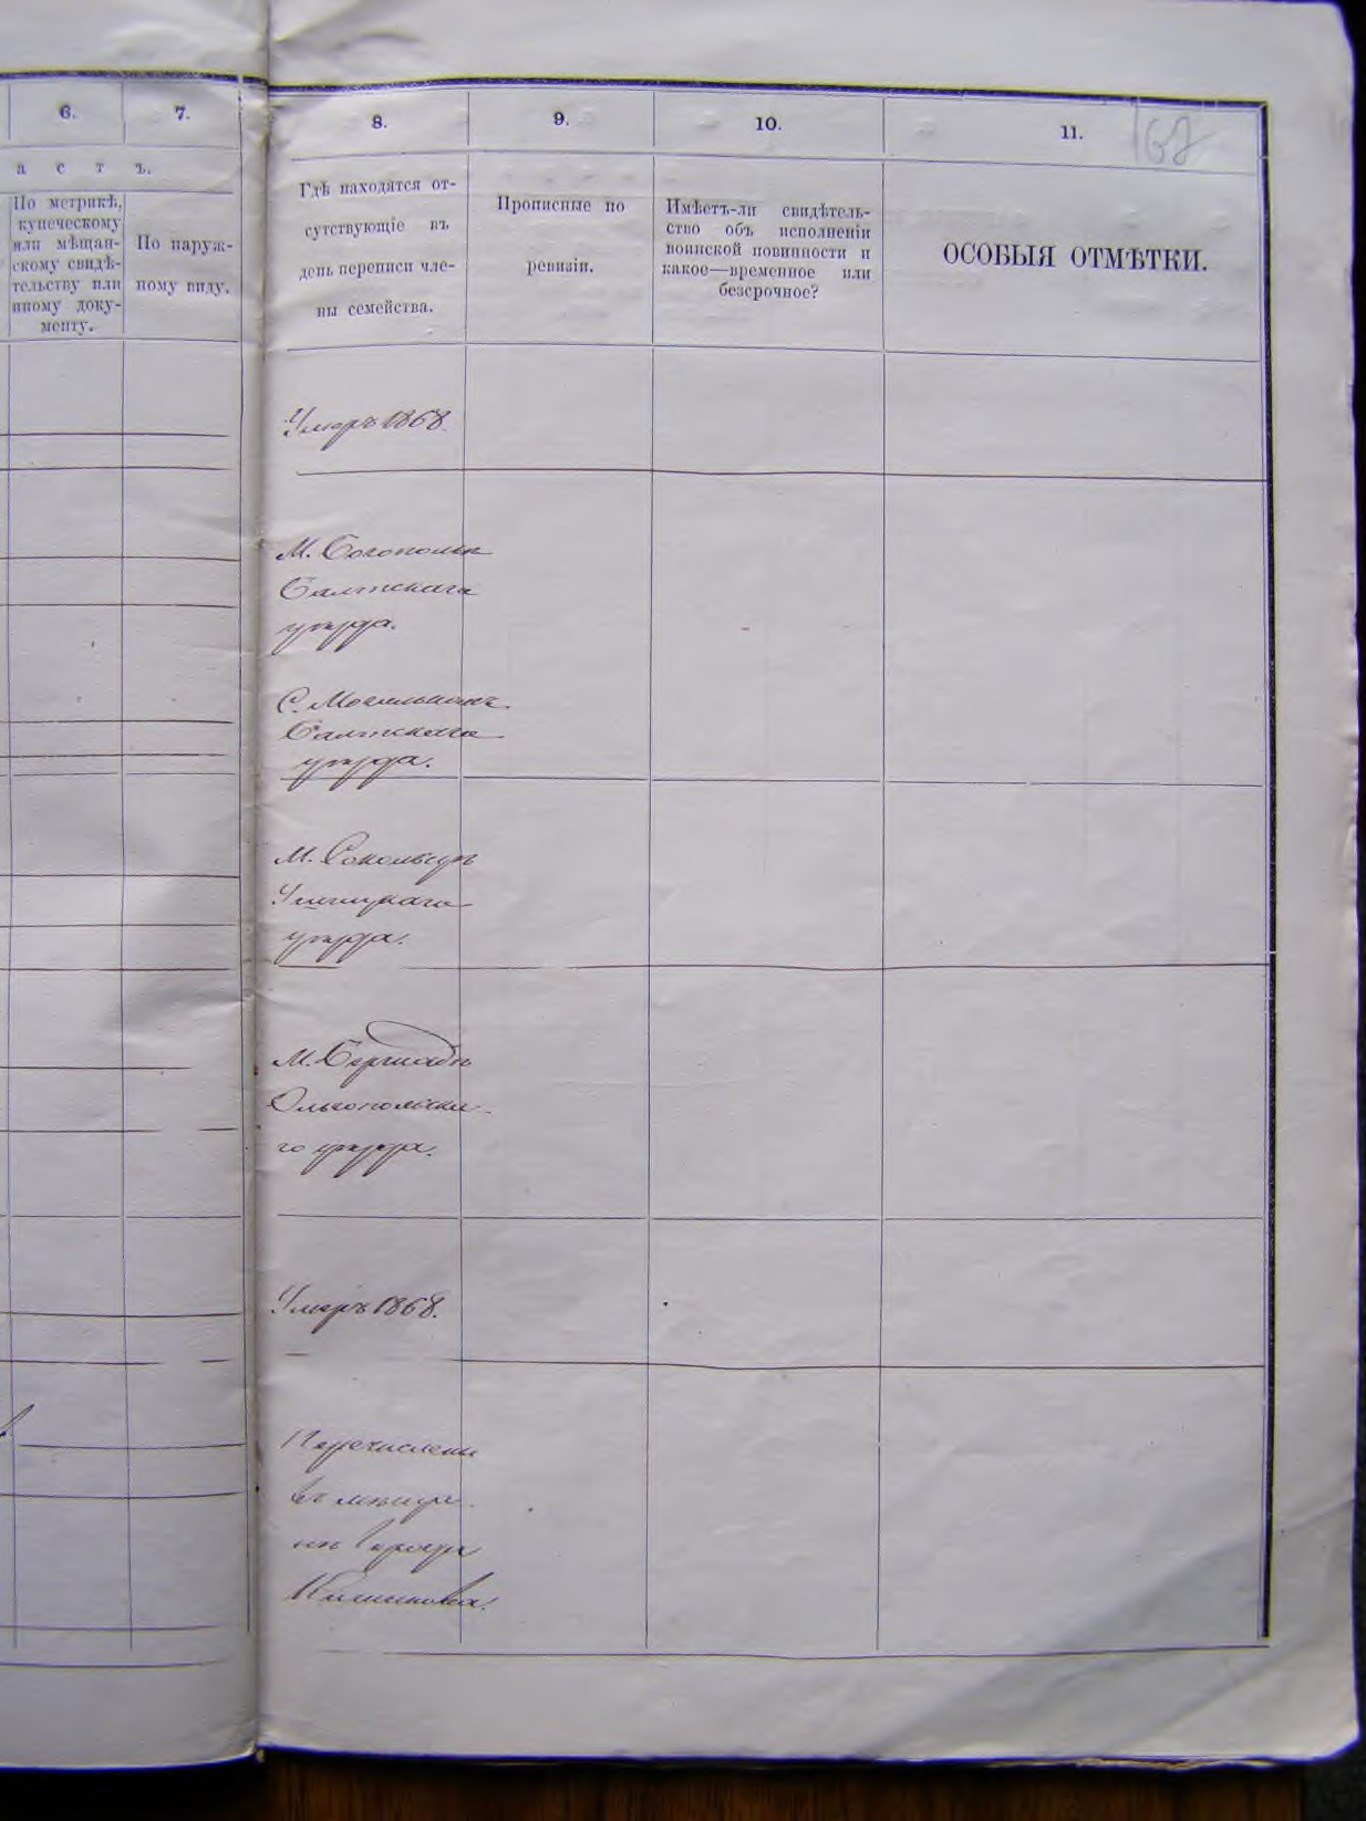 6.
7.
8.
9.
10.
11.
167
а с т ъ.
По метрикѣ,
купеческому
или мѣщан-
скому свидѣ-
тельству или
иному доку-
менту.
По наруж-
ному виду.
Гдѣ находятся от-
сутствующіе въ
день переписи чле-
ны семейства.
Прописные по
ревизіи.
Имѣетъ-ли свидѣтель-
ство объ исполненіи
воинской повинности и
какое—временное или
безсрочное?
ОСОБЫЯ ОТМѢТКИ.
Умеръ 1868.
М. Богополь
Балтскаго
уѣзда.
С. Могильное
Балтскаго
уѣзда.
М.
Ушицкаго
уѣзда.
М. Бершадь
Ольгопольска-
го уѣзда.
Умеръ 1868.
Перечислены
въ мѣщане
города
Кишинева.